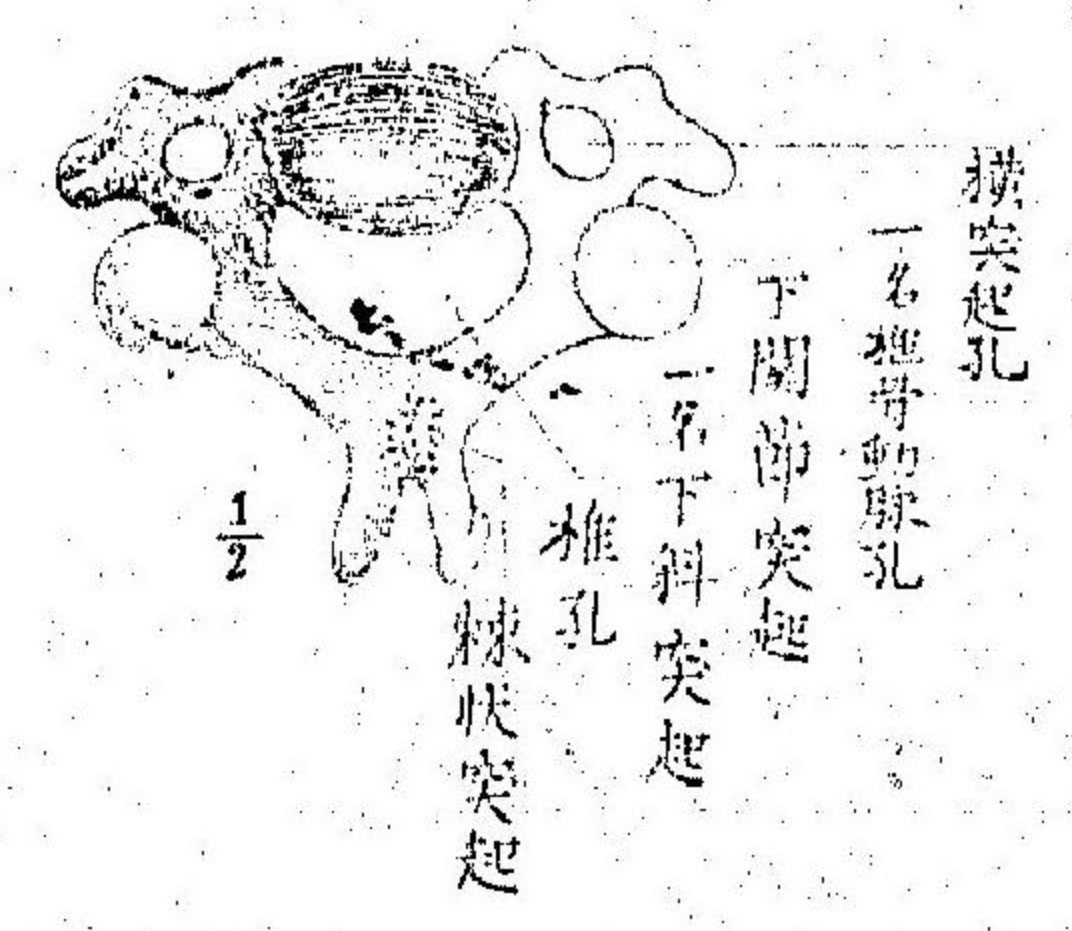 横突起孔
一名椎骨動脈孔
下關節突起
一名下斜突起
椎孔
棘状突起
1/2